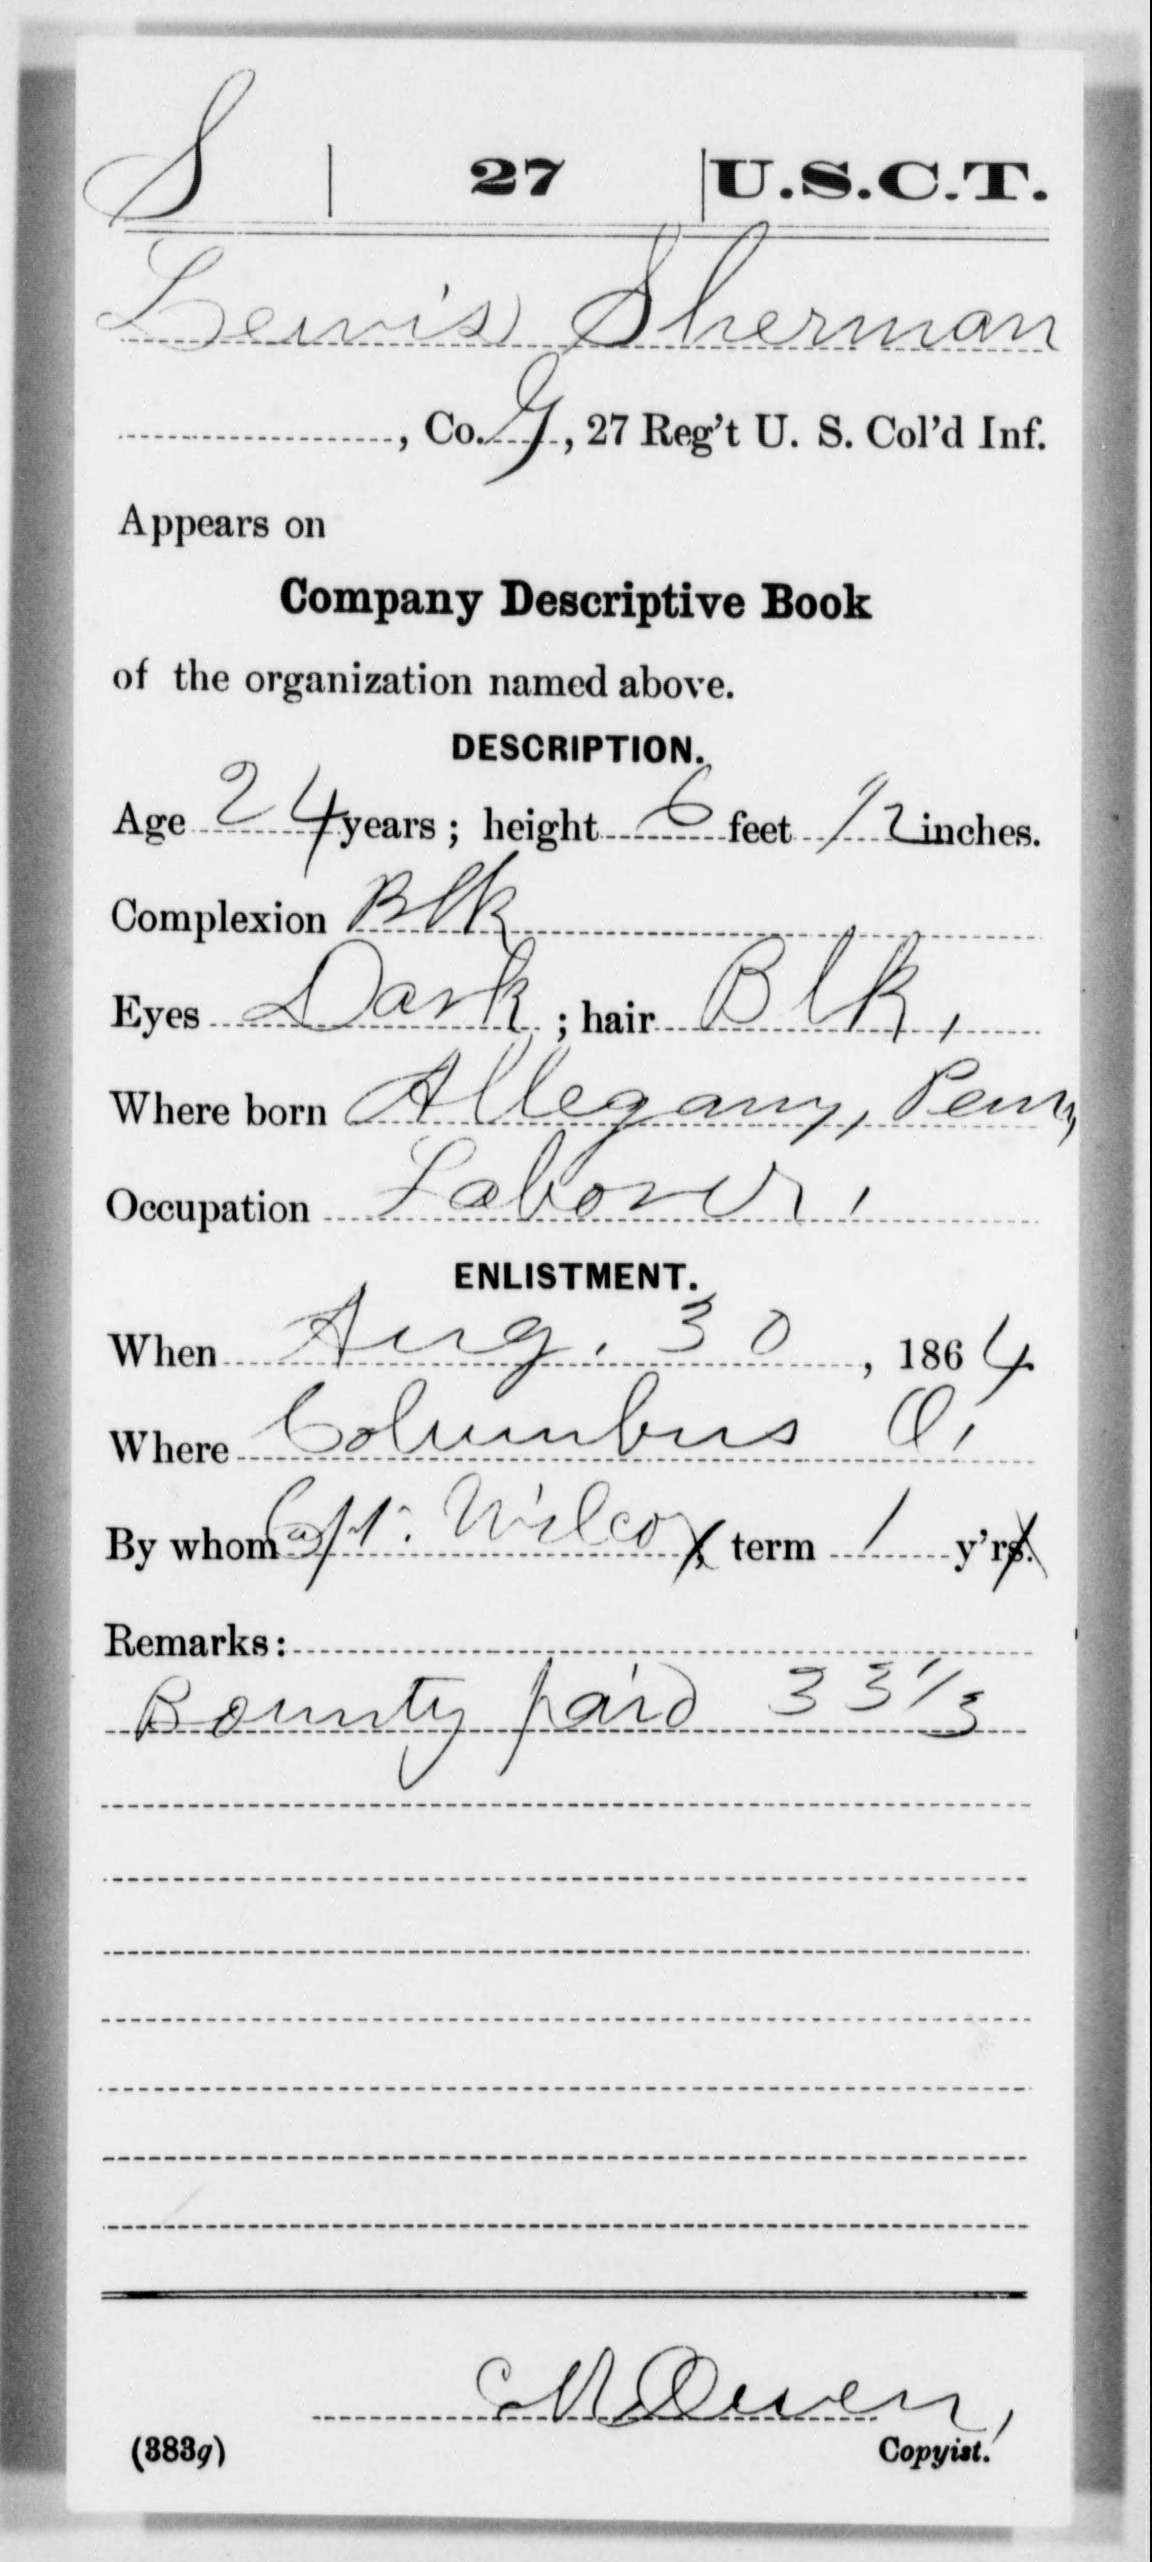 S | 27 | U.S.C.T.
Lewis Sherman
, Co. G, 27 Reg't U. S. Col'd Inf.
Appears on
Company Descriptive Book
of the organization named above.
DESCRIPTION.
Age 24 years; height 6 feet 1/2 inches.
Complexion Blk
Eyes Dark; hair Blk,
Where born Allegany, Penn,
Occupation Laborer,
ENLISTMENT.
When Aug. 30, 1864
Where Columbus O,
By whom Capt. Wilcox term 1 y'rs.
Remarks:
Bounty paid 33 1/3
Owen,
(383g) Copyist.